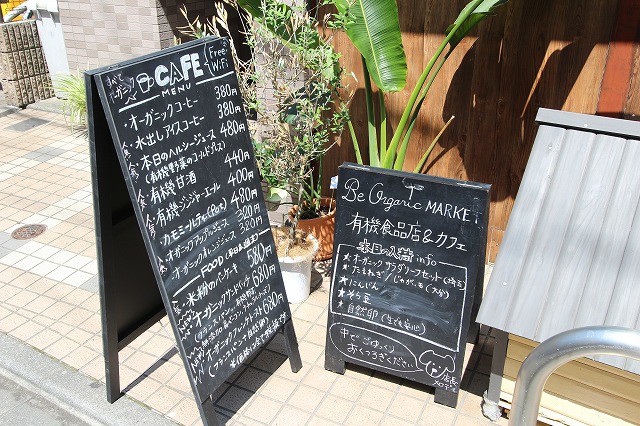 すべて
オーガニック
CAFE
MENU
Free
WiFi
オーガニックコーヒー 380円
水出しアイスコーヒー 380円
本日のヘルシージュース 480円
(有機野菜のコールドプレス)
有機甘酒 440円
有機ジンジャーエール 400円
カモミールティ(Pot) 480円
オーガニックアップルジュース 320円
オーガニックオレンジジュース 320円
FOOD
米粉のパンケーキ 580円
オーガニックサンドイッチ 680円
680円
Be Organic MARKET
有機食品店&カフェ
本日の入荷 info
★オーガニックサラダリーフセット(埼玉)
★たまねぎ/じゃがいも(大分)
★にんじん
★そら豆
★自然卵(生でも安心)
中でごゆっくり
おくつろぎください
店長